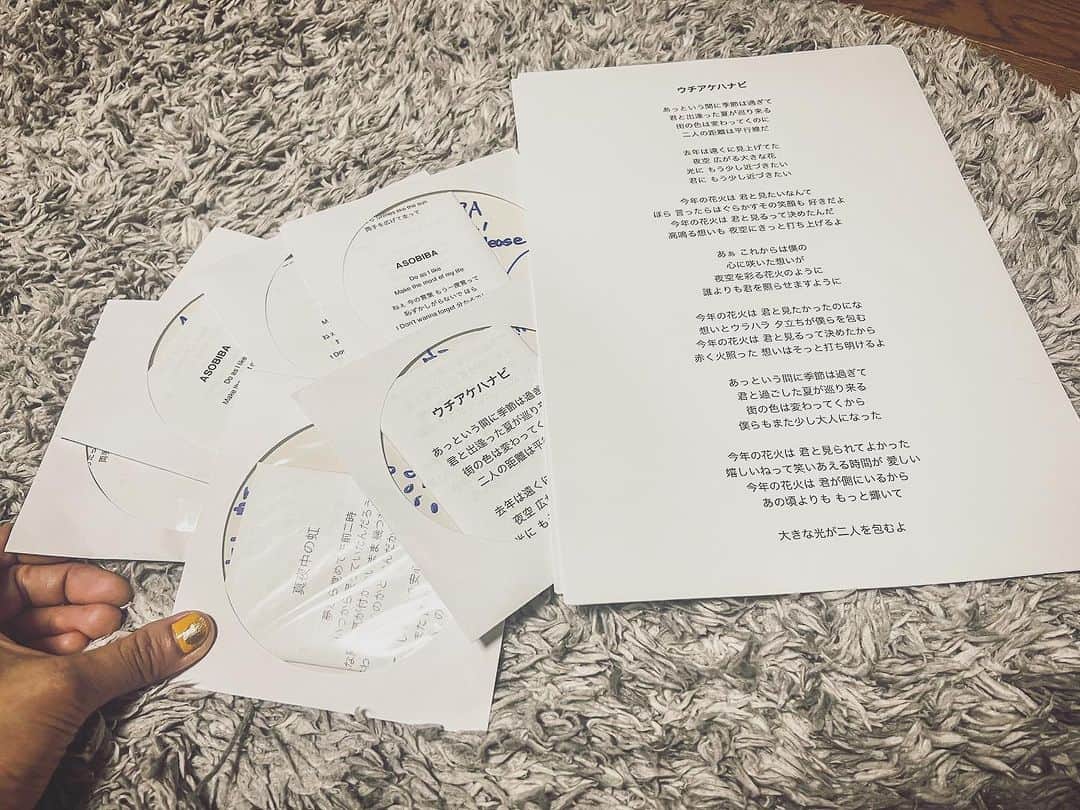 ウチアケハナビ
あっという間に季節は過ぎて
君と出逢った夏が巡り来る
街の色は変わってくのに
二人の距離は平行線だ
去年は遠くに見上げてた
夜空 広がる大きな花
光に もう少し近づきたい
君に もう少し近づきたい
今年の花火は 君と見たいなんて
ほら 言ったらはぐらかすその笑顔も 好きだよ
今年の花火は 君と見るって決めたんだ
高鳴る想いも 夜空にきっと打ち上げるよ
あぁ これからは僕の
心に咲いた想いが
夜空を彩る花火のように
誰よりも君を照らせますように
今年の花火は 君と見たかったのにな
想いとウラハラ 夕立ちが僕らを包む
今年の花火は 君と見るって決めたから
赤く火照った 想いはそっと打ち明けるよ
あっという間に季節は過ぎて
君と過ごした夏が巡り来る
街の色は変わってくから
僕らもまた少し大人になった
今年の花火は 君と見られてよかった
嬉しいねって笑いあえる時間が 愛しい
今年の花火は 君が側にいるから
あの頃よりも もっと輝いて
大きな光が二人を包むよ
the sun
両手を広げて立って
ASOBIBA
Do as I like
Make the most of my life
ねぇ 今の言葉 もう一度言って
恥ずかしがらないで ほら
I Don't wanna forget
ASOBIBA
Do as I like
ウチアケハナビ
あっという間に季節は過ぎ
君と出逢った夏が巡り
街の色は変わってく
二人の距離は平
去年は遠くに
夜空
光に も
真夜中の虹